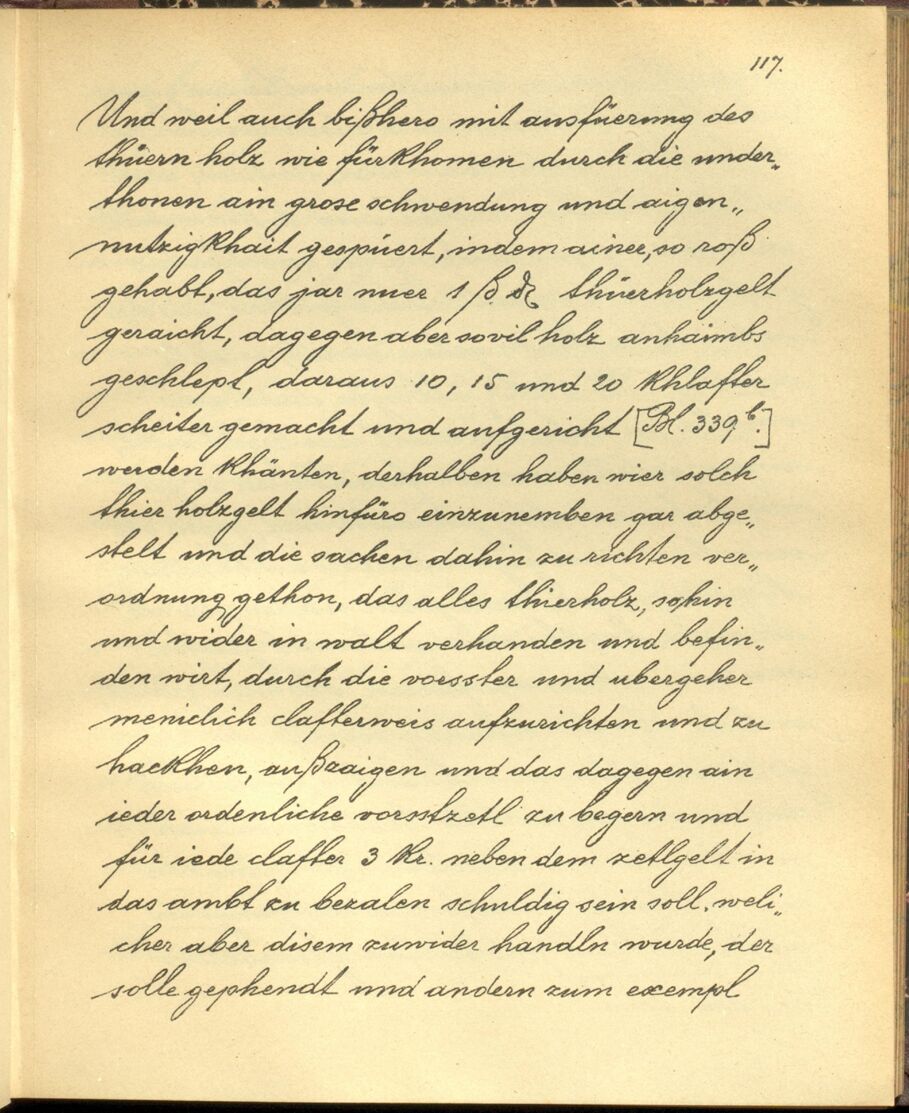 117.
Und weil auch bißhero mit ausfüerung des
thüern holz wie fürkhomen durch die under„
thonen ain grose schwendung und aigen„
nutzigkhait gespüert, indem ainer, so roß
gehabt, das jar nuer 1 ß. ₰ thüerholzgelt
geraicht, dagegen aber sovil holz anhaimbs
geschlept, daraus 10, 15 und 20 khlafter
scheiter gemacht und aufgericht [Bl. 339 b.]
werden khänten, derhalben haben wier solch
thier holzgelt hinfüro einzunemben gar abge„
stelt und die sachen dahin zu richten ver„
ordnung gethon, das alles thierholz, so hin
und wider in walt verhanden und befin„
den wirt, durch die vorsster und ubergeher
meniclich clafterweis aufzurichten und zu
hackhen, außzaigen und das dagegen ain
ieder ordenliche vorsstzetl zu begern und
für iede clafter 3 kr. neben dem zetlgelt in
das ambt zu bezalen schuldig sein soll. weli„
cher aber disem zuwider handln wurde, der
solle gephendt und andern zum exempl